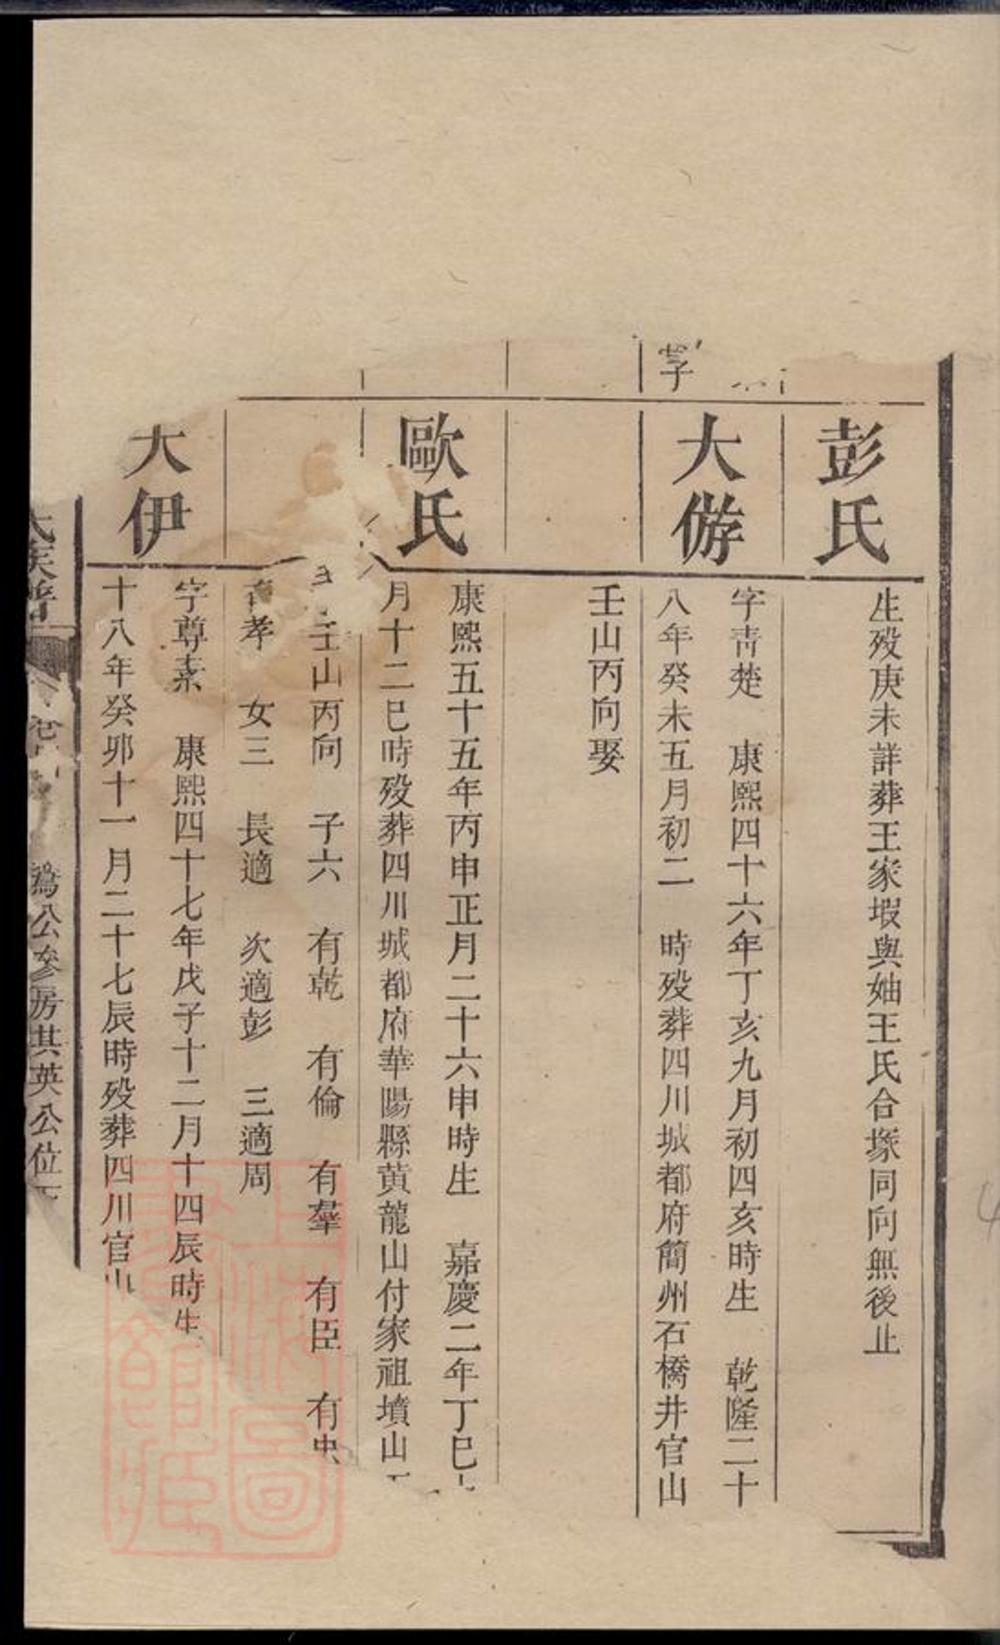 彭氏
生歿庚未詳葬王家塅與妯王氏合塚同向無後止
大㳺
字靑楚 康熙四十六年丁亥九月初四亥時生 乾隆二十
八年癸未五月初二 時歿葬四川城都府簡州石橋井官山
壬山丙向娶
歐氏
康熙五十五年丙申正月二十六申時生 嘉慶二年丁巳
月十二巳時歿葬四川城都府華陽縣黄龍山付家祖墳山
壬山丙向 子六 有乾 有倫 有羣 有臣 有忠
孝 女三 長適 次適彭 三適周
大伊
字尊素 康熙四十七年戊子十二月十四辰時生
十八年癸卯十一月二十七辰時歿葬四川官山
氏族譜
公參房其英公位下
上海圖書館藏